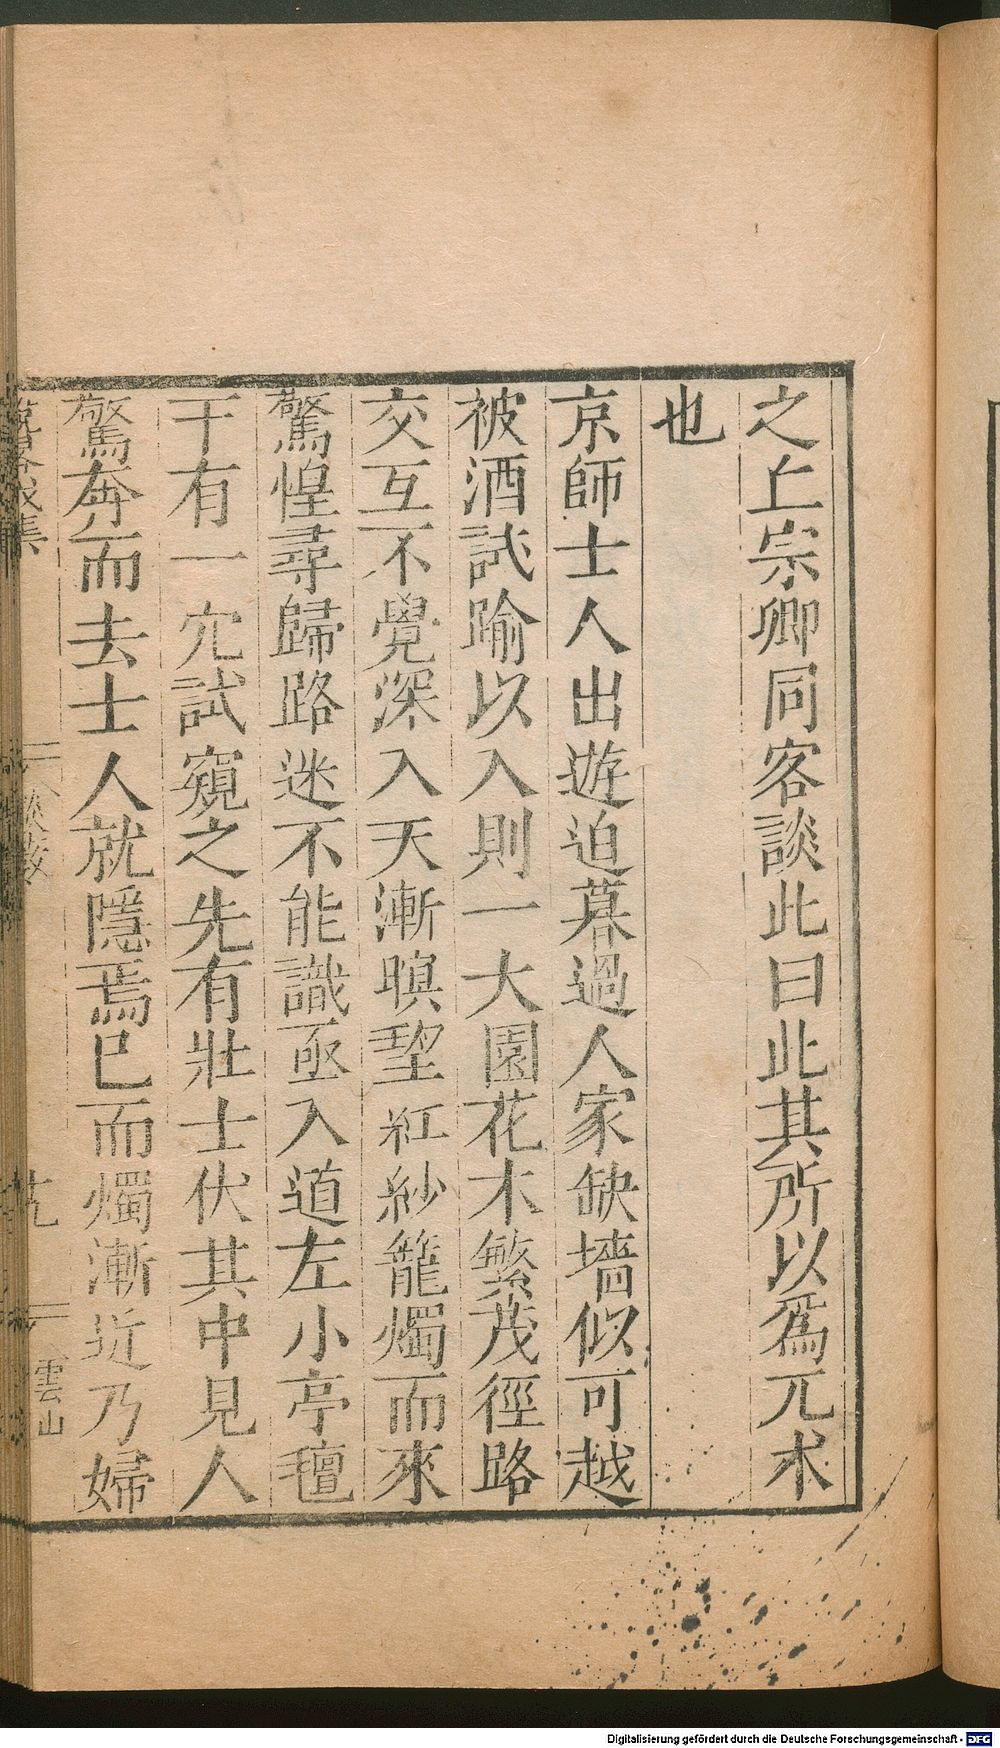 之上宗卿同客談此曰此其所以爲兀术
也
京師士人出遊迫暮過人家缺墻似可越
被酒試踰以入則一大園花木繁茂徑路
交互不覺深入天漸暝望紅紗籠燭而來
驚惶尋歸路迷不能識亟入道左小亭氊
下有一穴試窺之先有壯士伏其中見人
驚奔而去士人就隱焉已而燭漸近乃婦
雲山
Digitalisierung gefördert durch die Deutsche Forschungsgemeinschaft - DFG